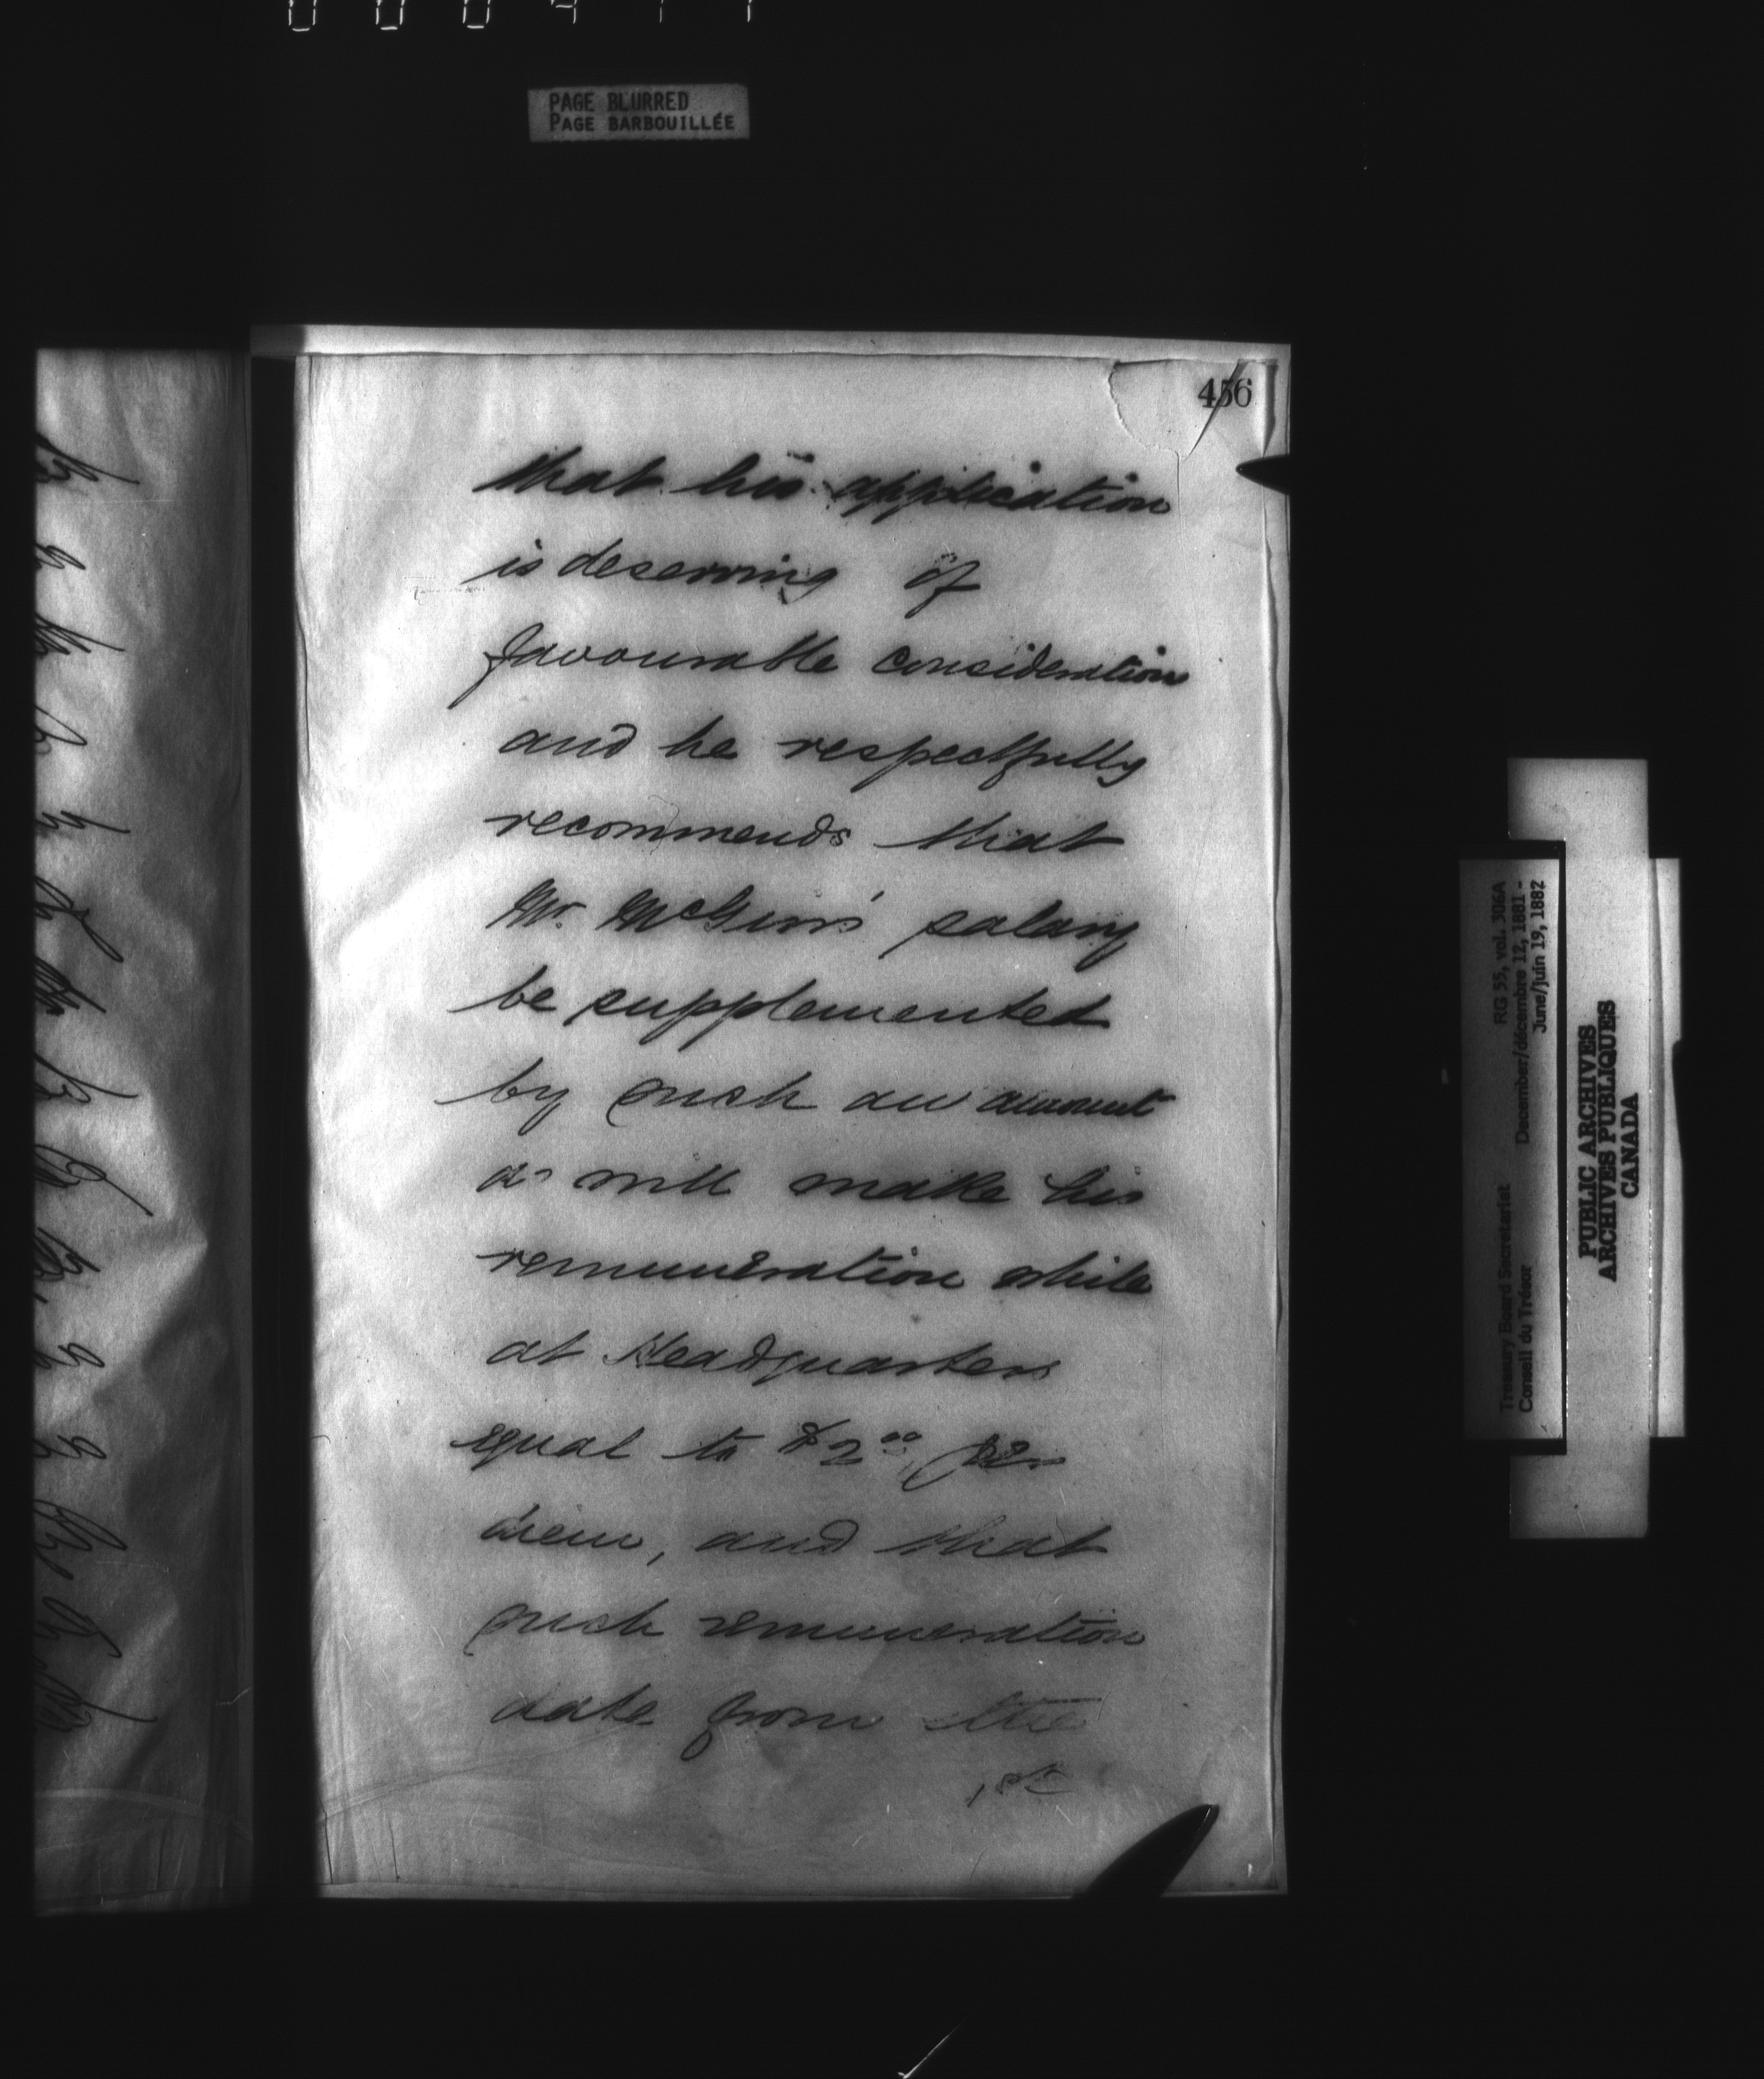 PAGE BLURRED
PAGE BARBOUILLÉE
456
that his application
is deserving of
favourable consideration
and he respectfully
recommends that
Mr. McGinn's salary
be supplemented
by such an amount
as will make his
remuneration while
at Headquarters
equal to $2.00 per
diem, and that
such remuneration
date from the
1st
Treasury Board Secretariat RG 55, vol. 306A
Conseil du Trésor December/décembre 12, 1881 -
June/juin 19, 1882
PUBLIC ARCHIVES
ARCHIVES PUBLIQUES
CANADA